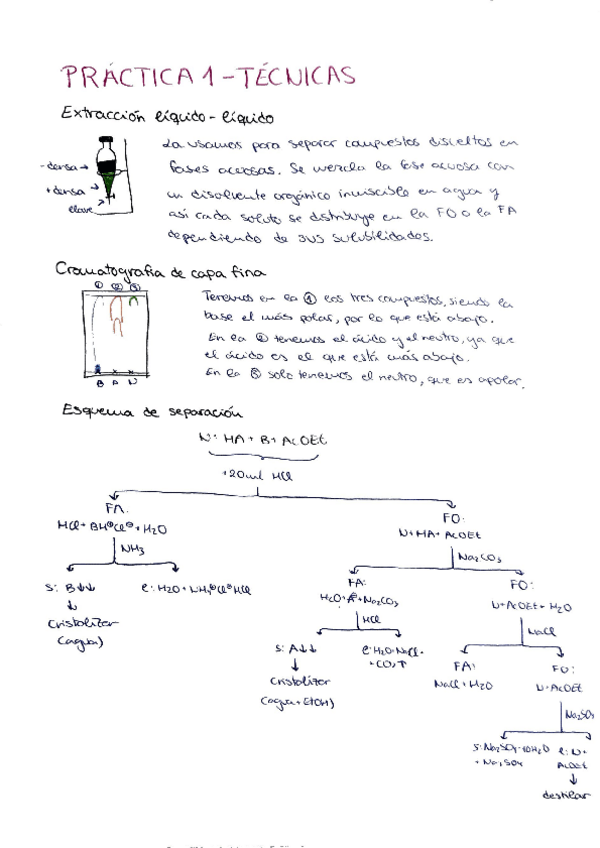 PRÁCTICA 1 - TÉCNICAS
Extracción líquido - líquido
La usamos para separar compuestos disueltos en
fases acuosas. Se mezcla la fase acuosa con
un disolvente orgánico inmiscible en agua y
así cada soluto se distribuye en la FO o la FA
dependiendo de sus solubilidades.
- densa →
+ densa →
llave →
Cromatografía de capa fina
① ② ③
B A N
Tenemos en la ① los tres compuestos, siendo la
base el más polar, por lo que está abajo.
En la ② tenemos el ácido y el neutro, ya que
el ácido es el que está más abajo.
En la ③ solo tenemos el neutro, que es apolar.
Esquema de separación
N + HA + B + AcOEt
+20ml HCl
FA:
HCl + BH⊕Cl⊖ + H2O
NH3
S: B↓↓
cristalizar
(agua)
l: H2O + NH4⊕Cl⊖ HCl
FO:
N + HA + AcOEt
Na2CO3
FA:
H2O + A⊖ + Na2CO3
HCl
S: A↓↓
cristalizar
(agua + EtOH)
l: H2O + NaCl +
+ CO2↑
FO:
N + AcOEt + H2O
NaCl
FA:
NaCl + H2O
FO:
N + AcOEt
Na2SO4
S: Na2SO4·10H2O
+ Na2SO4
l: N +
AcOEt
destilar